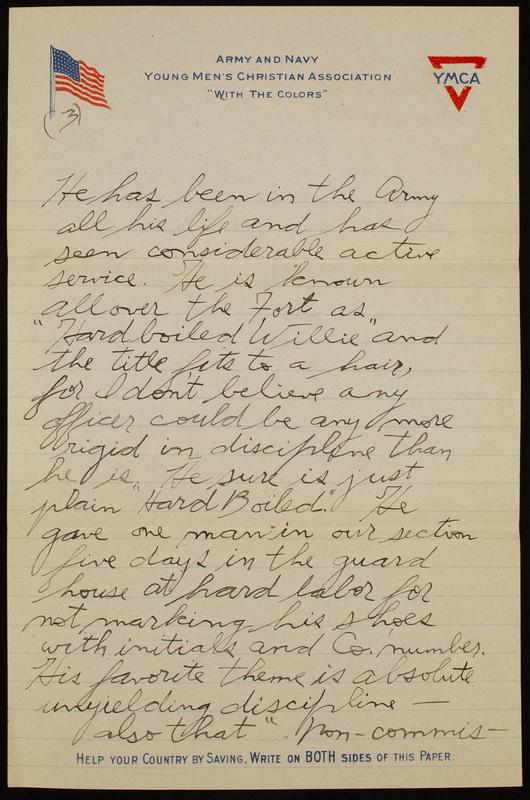 ARMY AND NAVY
YOUNG MEN'S CHRISTIAN ASSOCIATION
"WITH THE COLORS"
YMCA
(3)
He has been in the Army
all his life and has
seen considerable active
service. He is known
all over the Fort as
"Hardboiled Willie" and
the title fits to a hair,
for I don't believe any
officer could be any more
rigid in discipline than
he is. He sure is just
plain "Hard Boiled." He
gave one man in our section
five days in the guard
house at hard labor for
not marking his shoes
with initials and Co. number.
His favorite theme is absolute
unyielding discipline —
also that "Non-commis-
HELP YOUR COUNTRY BY SAVING. WRITE ON BOTH SIDES OF THIS PAPER